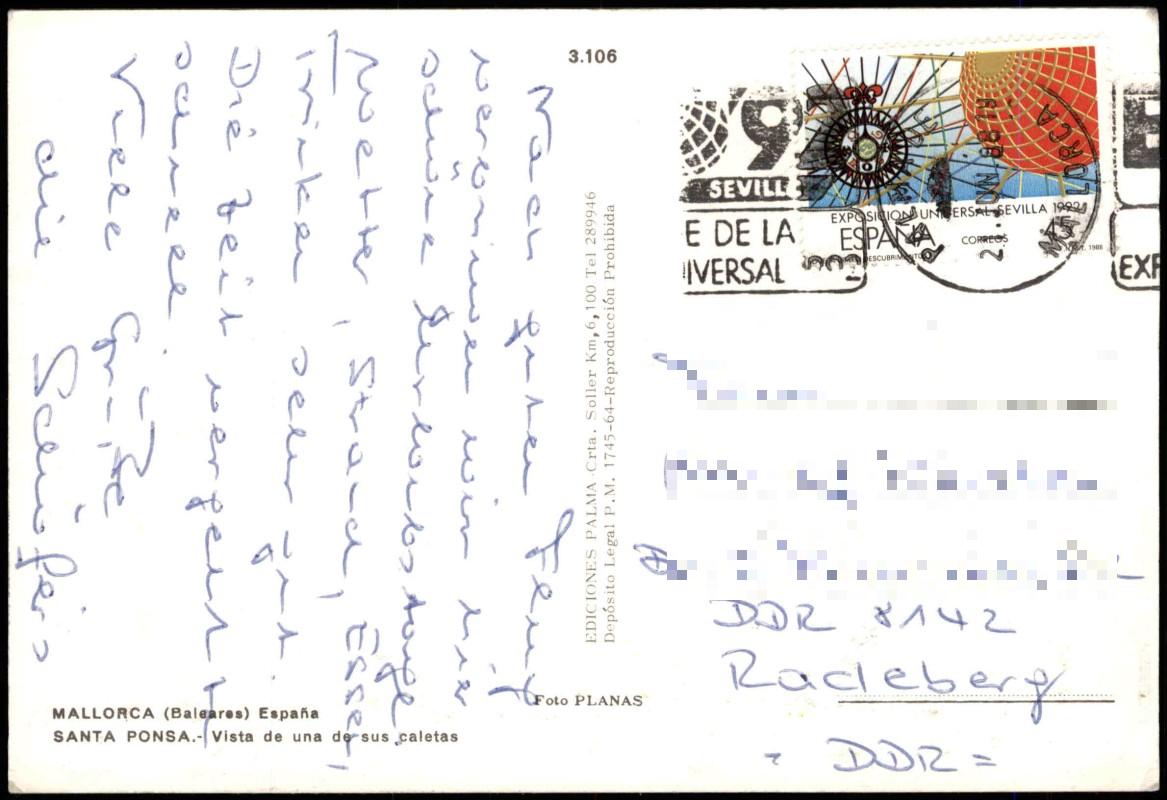 3.106
Nach guten Flug
verbringen wir hier
schöne Urlaubstage.
Wetter, Strand, Essen,
Trinken sehr gut.
Die Zeit vergeht
schnell.
Viele Grüße
die Schäfers
EDICIONES PALMA-Crta. Soller Km,6,100 Tel 289946
Depósito Legal P.M. 1745-64-Reproducción Prohibida
Foto PLANAS
MALLORCA (Baleares) España
SANTA PONSA.- Vista de una de sus caletas
9
SEVILL
E DE LA
IVERSAL
EXPOSICION UNIVERSAL SEVILLA 1992
ESPAÑA
CORREOS
45
DESCUBRIMIENTO
1988
MALLORCA
E
EXP
DDR 8142
Radeberg
= DDR =